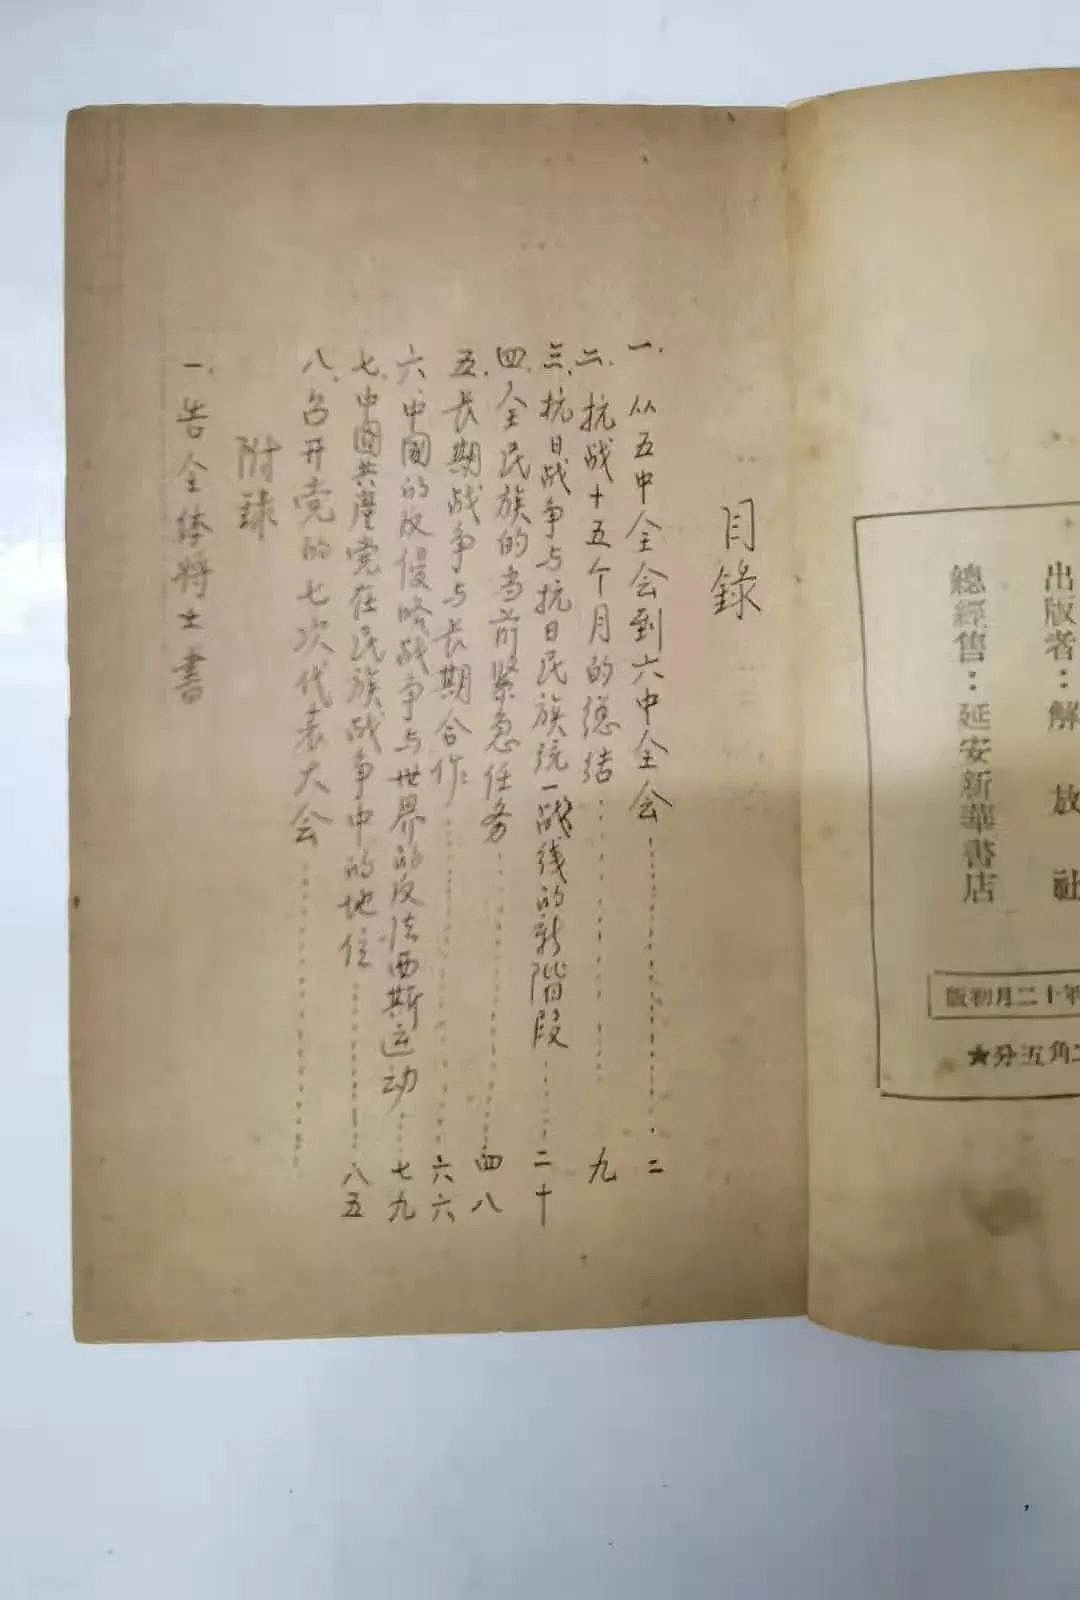 出版者：解放社
總經售：延安新華書店
年十二月初版
角五分★
目錄
一.从五中全会到六中全会……二
二.抗战十五个月的總结……九
三.抗日战争与抗日民族统一战线的新階段……二十
四.全民族的当前緊急任务……四八
五.长期战争与长期合作……六六
六.中國的反侵略战争与世界的反法西斯运动……七九
七.中国共產党在民族战争中的地位……八五
八.召开党的七次代表大会……
附錄
一.告全体将士書